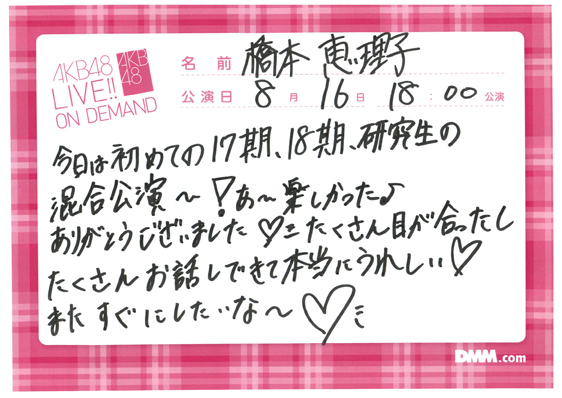 AKB48
LIVE!!
ON DEMAND
AKB
48
名前 橋本 恵理子
公演日 8月 16日 18:00 公演
今日は初めての17期、18期、研究生の
混合公演〜!あ〜楽しかった♪
ありがとうございました♡ たくさん目が合ったし
たくさんお話しできて本当にうれしい♡
またすぐにしたいな〜♡
DMM.com